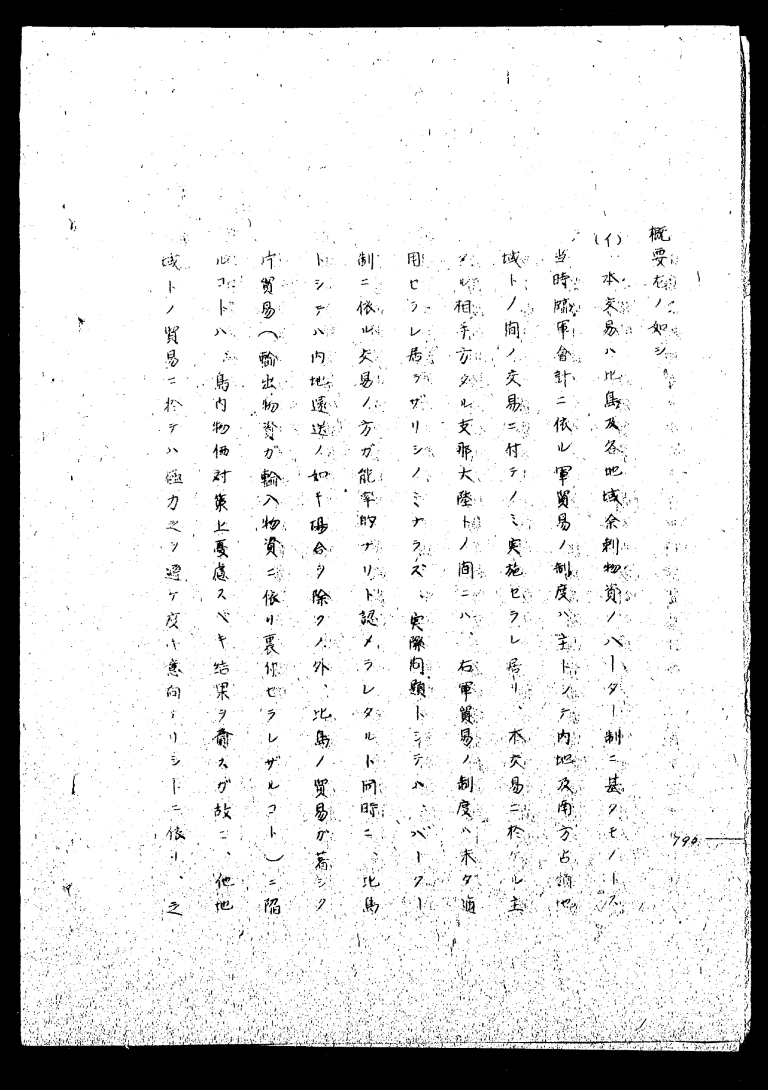 概要左ノ如シ。
(イ)、本交易ハ比島及各地域余剰物資ノバーター制ニ基クモノトス
当時臨軍會計ニ依ル軍貿易ノ制度ハ主トシテ内地及南方占領地
域トノ間ノ交易ニ付テノミ実施セラレ居リ、本交易ニ於ケル主
タル相手方タル支那大陸トノ間ニハ、右軍貿易ノ制度ハ未ダ適
用セラレ居ラザリシノミナラズ、実際問題トシテハ、バーター
制ニ依ル交易ノ方ガ能率的ナリト認メラレタルト同時ニ、比島
トシテハ内地還送ノ如キ場合ヲ除クノ外、比島ノ貿易ガ著シク
片貿易(輸出物資ガ輸入物資ニ依リ裏付セラレザルコト)ニ陥
ルコトハ、島内物価対策上憂慮スベキ結果ヲ齎スガ故ニ、他地
域トノ貿易ニ於テハ極力之ヲ避ケ度キ意向アリシトニ依リ、之
790